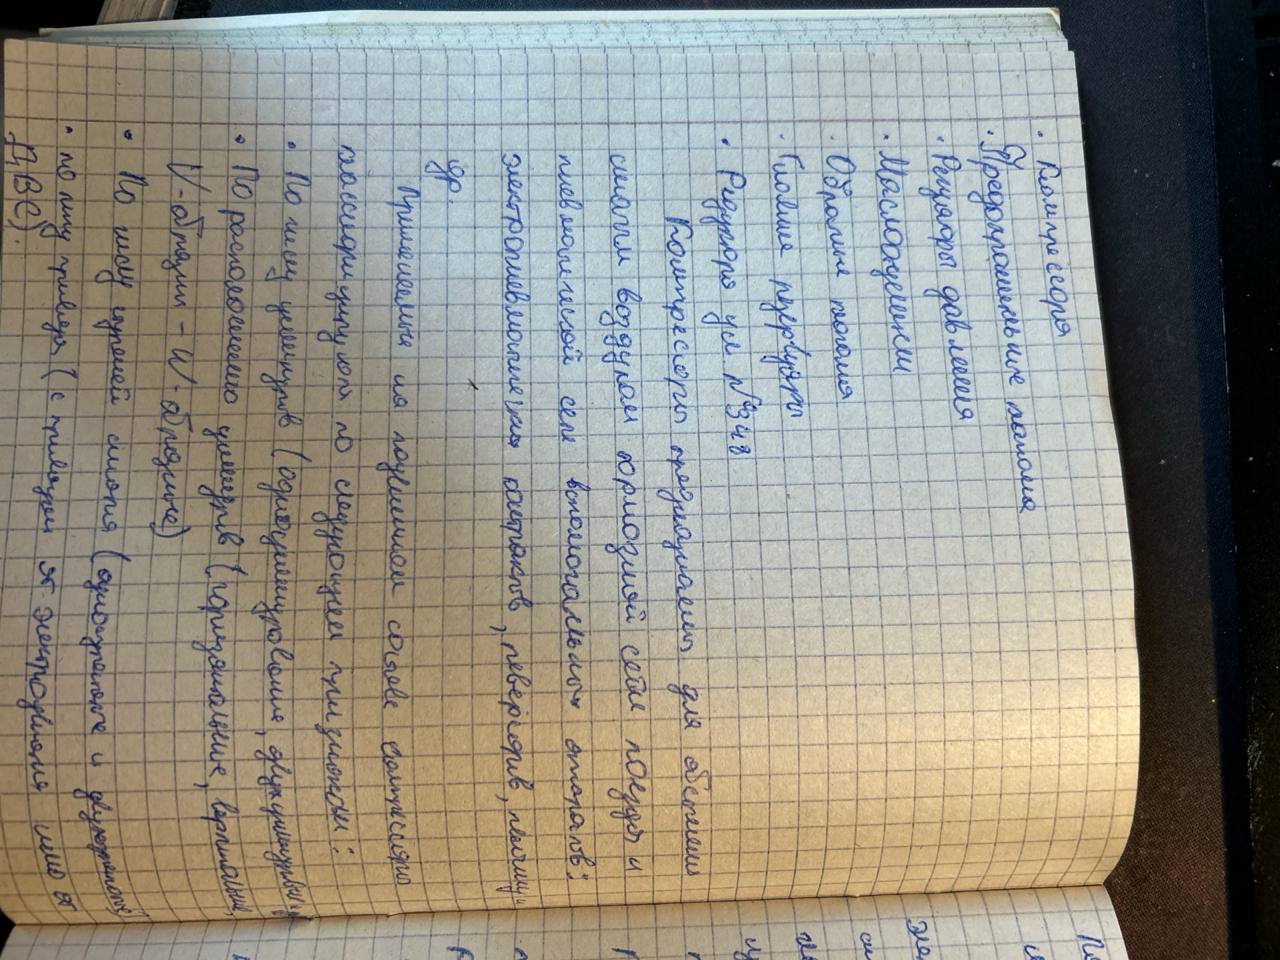 · Компрессора
· Предохранительные клапана
· Регуляторы давления
· Маслоотделители
· Обратные клапана
· Главные резервуары
· Редуктора усл. №348
Компрессоры предназначены для обеспечения
сжатым воздухом тормозной сети поезда и
пневматической сети вспомогательных аппаратов:
электропневматических контакторов, реверсоров,
др.
Применяемые на подвижном составе компрессоры
классифицируются по следующим признакам:
· По числу цилиндров (одноцилиндровые, двухцилиндровые и
· По расположению цилиндров (горизонтальные, вертикальные,
V-образные - W-образные)
· По числу ступеней сжатия (одноступенчатые и двухступенчатые)
· по типу привода (с приводом от электродвигателя или от
ДВС).